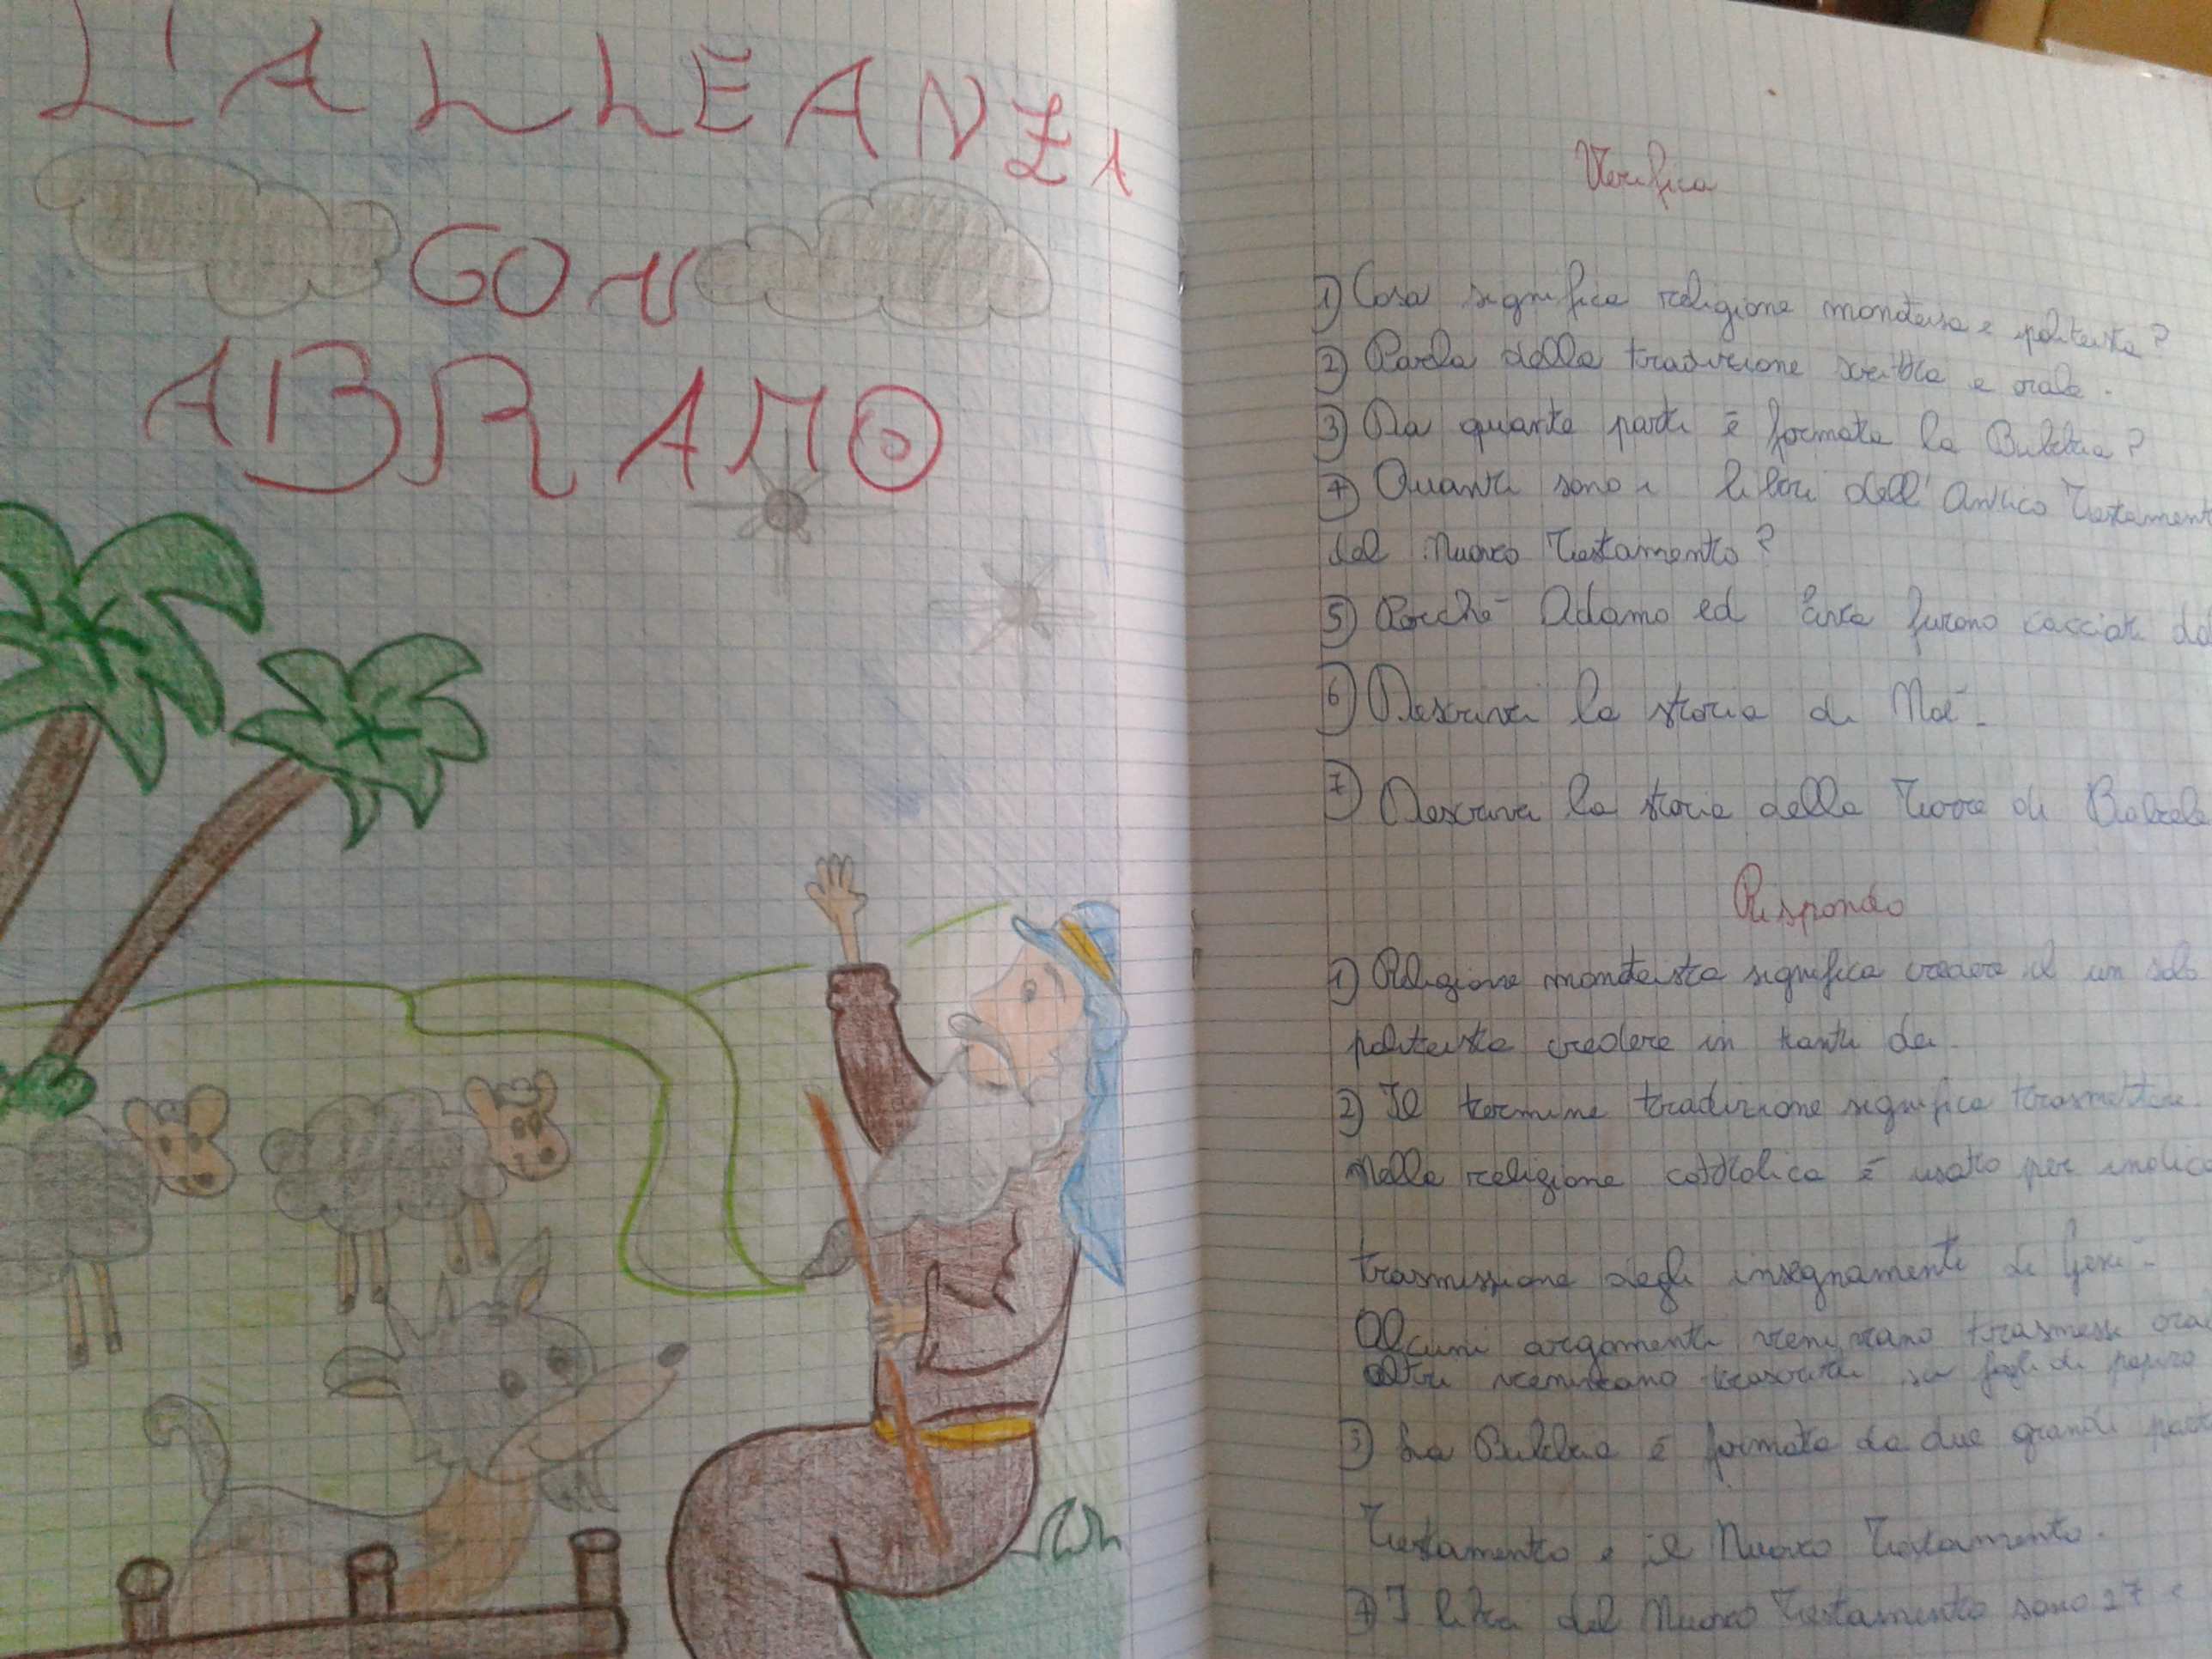 L'ALLEANZA
CON
ABRAMO
Verifica
1) Cosa significa religione monoteista e politeista?
2) Parla della tradizione scritta e orale.
3) Da quante parti è formata la Bibbia?
4) Quanti sono i libri dell'Antico Testament
del Nuovo Testamento?
5) Perché Adamo ed Eva furono cacciati da
6) Descrivi la storia di Noè.
7) Descrivi la storia della Torre di Babele
Rispondo
1) Religione monoteista significa credere il un solo
politeista credere in tanti dei.
2) Il termine tradizione significa trasmettere.
Nella religione cattolica è usato per indica
trasmissione degli insegnamenti di Gesù.
Alcuni argomenti venivano trasmessi oral
altri venivano trascritti su fogli di papiro
3) La Bibbia è formata da due grandi part
Testamento e il Nuovo Testamento.
4) I libri del Nuovo Testamento sono 27 e